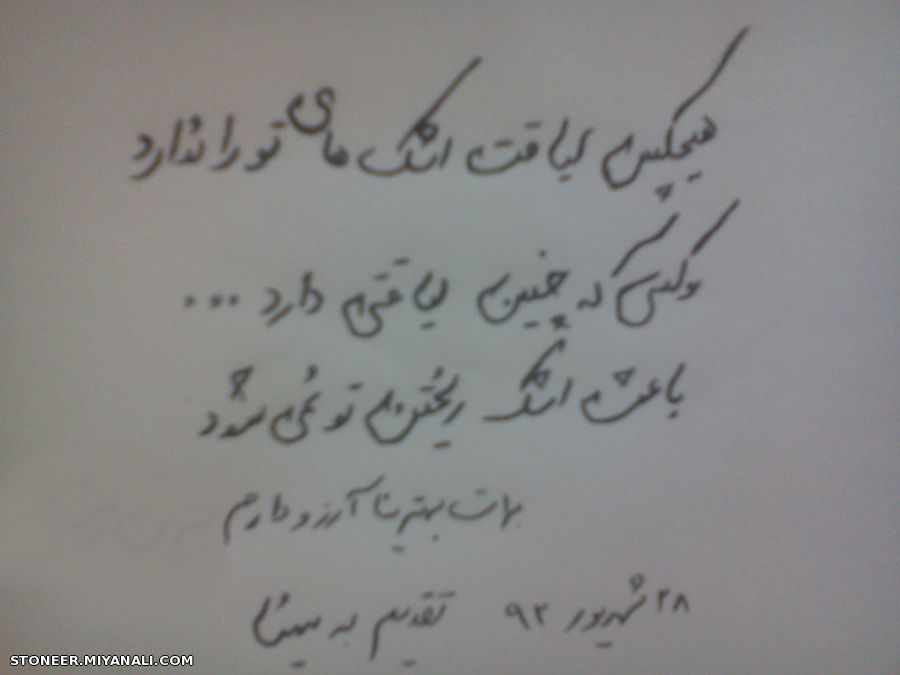 هیچکس لیاقت اشک های تو را ندارد
و کسی که چنین لیاقتی دارد ...
باعث اشک ریختن تو نمی شود
برات بهترینا آرزو دارم
۲۸ شهریور ۹۲ تقدیم به سینا
STONEER.MIYANALI.COM